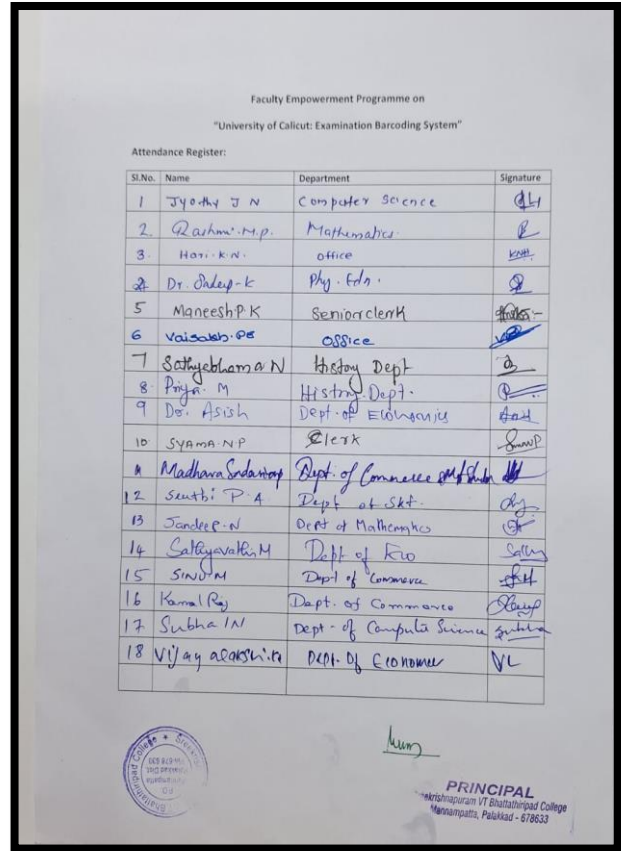 Faculty Empowerment Programme on
"University of Calicut: Examination Barcoding System"
Attendance Register:
Sl.No. Name Department Signature
1 Jyothy J N Computer Science
2. Rashmi.M.p. Mathematics.
3. Hari.K.N. office KNH
4 Dr. K Phy. Edn.
5 Maneesh P.K Senior clerk
6 Vaisakh.PB office
7 Sathyebhama N History Dept
8. Priya. M History.Dept.
9 Dr. Asish Dept. of Economics
10 SYAMA.N.P Clerk
11 Madhava Dept. of Commerce
12 P. A. Dept of Skt.
13 Sandeep.N Dept of Mathematics
14 Sathyavathi M Dept of Eco Sathy
15 SINDU M Dept of Commerce
16 Kamal Raj Dept. of Commerce
17 Subha IN Dept - of Computer Science Subha
18 Dept. Of Economics VL
PRINCIPAL
Sreekrishnapuram VT Bhattathiripad College
Mannampatta, Palakkad - 678633